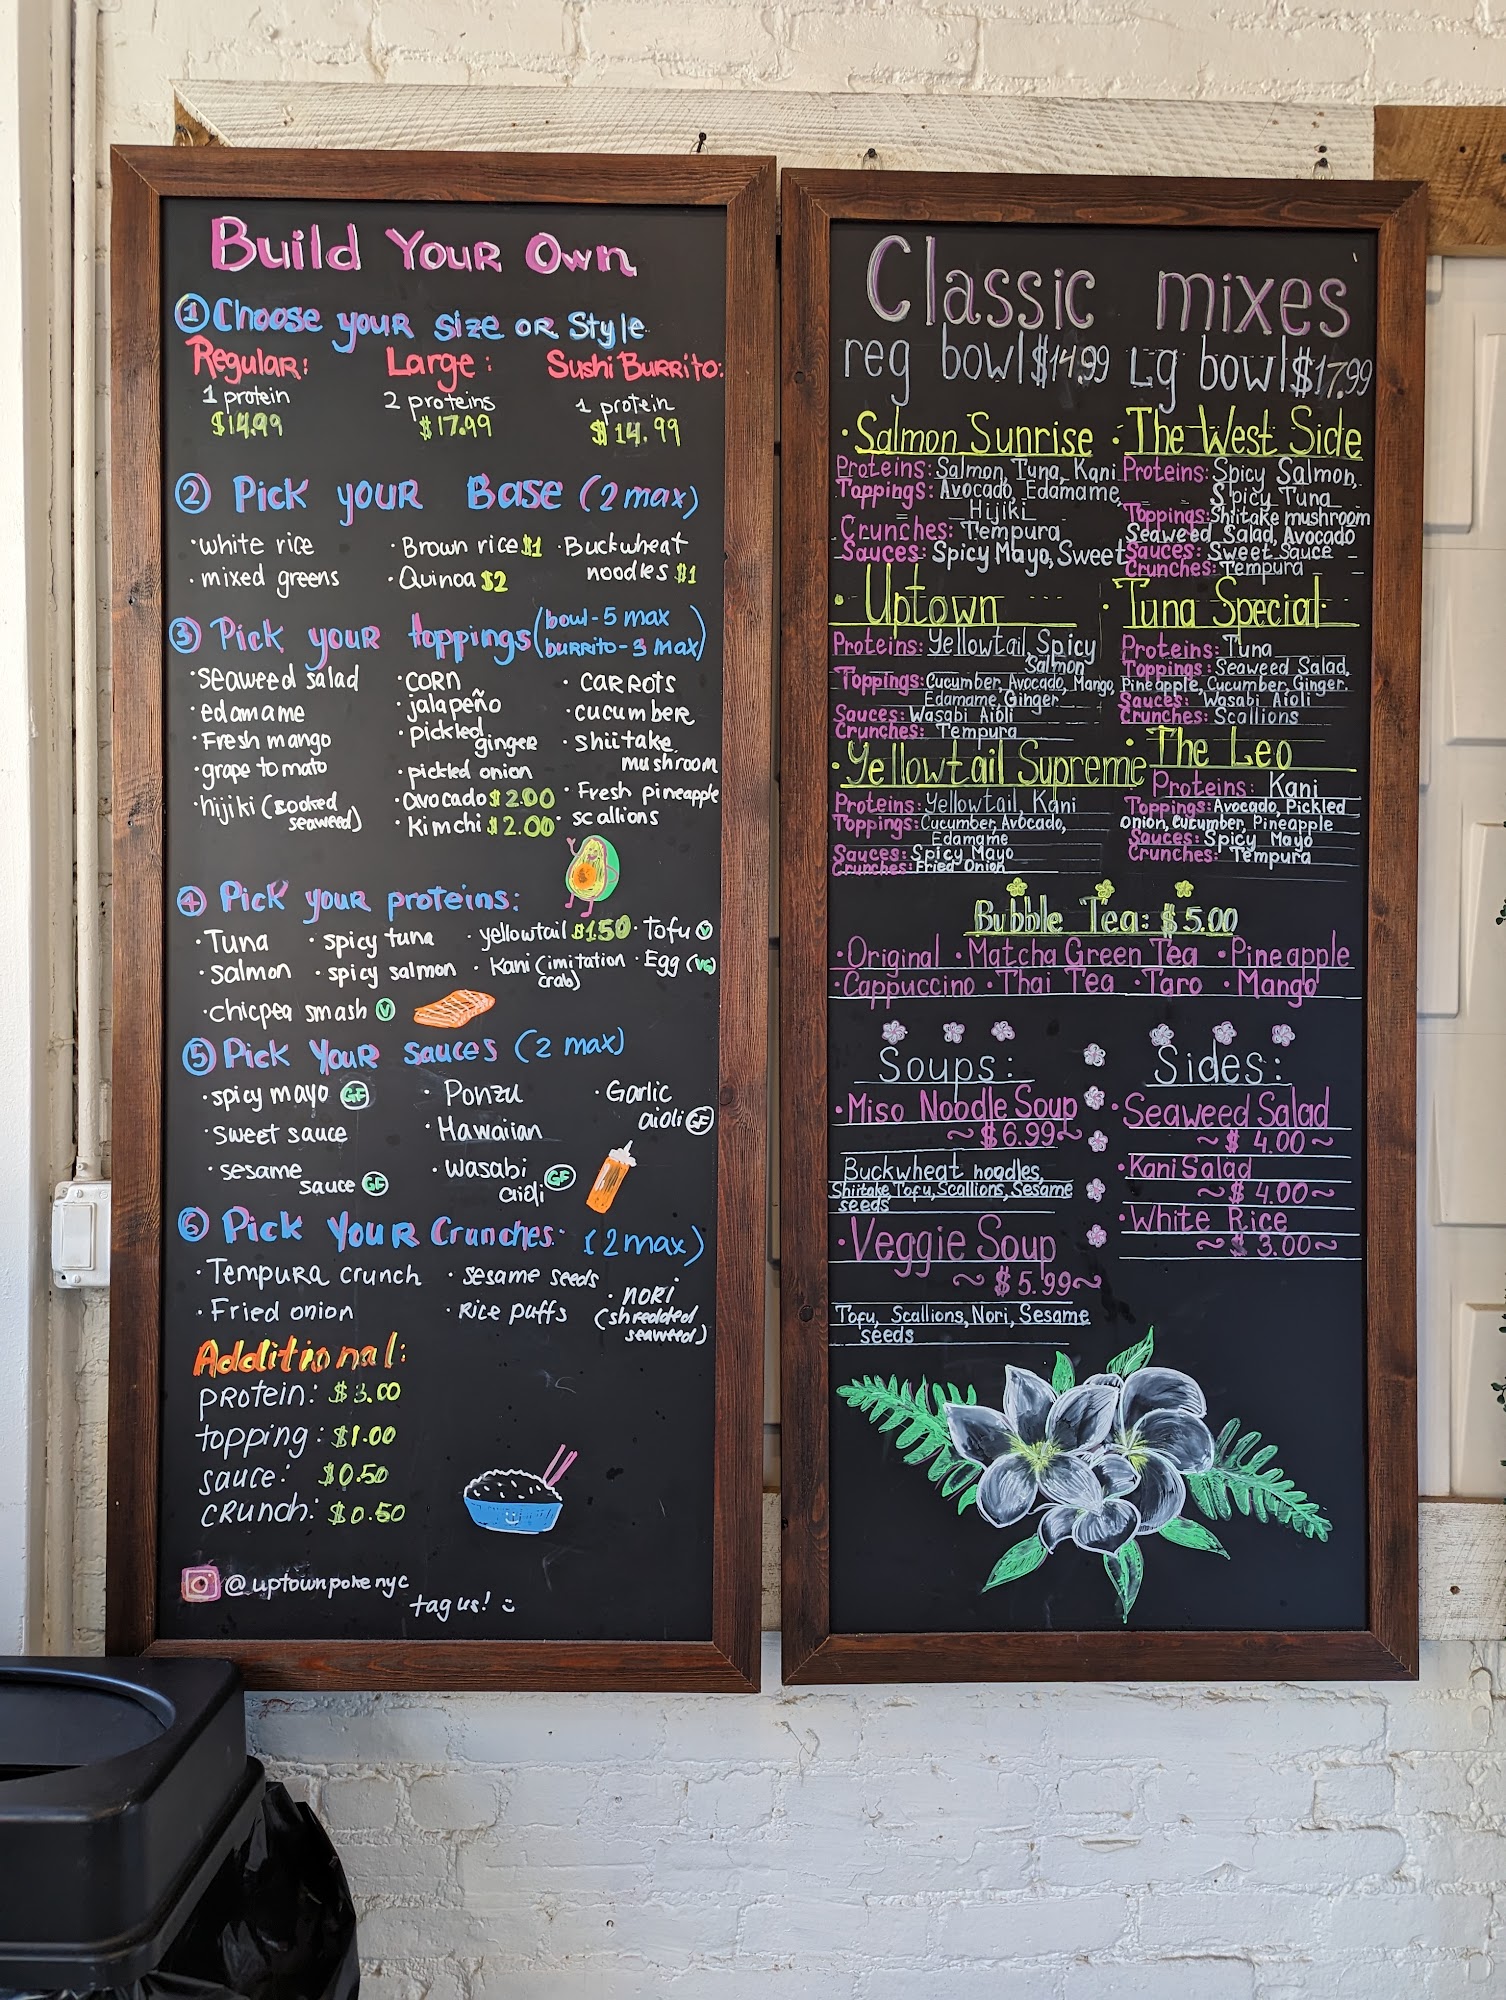 Build Your Own
① Choose your size or Style
Regular: Large: Sushi Burrito:
1 protein 2 proteins 1 protein
$14.99 $17.99 $14.99
② Pick your Base (2 max)
• white rice • Brown rice $1 • Buckwheat
noodles $1
• mixed greens • Quinoa $2
③ Pick your toppings (bowl - 5 max
burrito - 3 max)
• seaweed salad • corn • carrots
• edamame • jalapeño • cucumber
• Fresh mango • pickled ginger • shiitake mushroom
• grape tomato • pickled onion • Fresh pineapple
• hijiki (cooked seaweed) • avocado $2.00 • scallions
• kimchi $2.00
④ Pick your proteins:
• Tuna • spicy tuna • yellowtail $1.50 • Tofu V
• salmon • spicy salmon • Kani (imitation crab) • Egg (VG)
• chicpea smash V
⑤ Pick your sauces (2 max)
• spicy mayo GF • Ponzu • Garlic
aioli GF
• sweet sauce • Hawaiian
• sesame • wasabi
sauce GF aioli GF
⑥ Pick Your Crunches: (2 max)
• Tempura crunch • sesame seeds • nori
(shredded
seaweed)
• Fried onion • Rice puffs
Additional:
protein: $3.00
topping: $1.00
sauce: $0.50
crunch: $0.50
@uptownpokenyc
tag us!
Classic mixes
reg bowl $14.99 Lg bowl $17.99
• Salmon Sunrise
Proteins: Salmon, Tuna, Kani
Toppings: Avocado, Edamame,
Hijiki
Crunches: Tempura
Sauces: Spicy Mayo, Sweet
• The West Side
Proteins: Spicy Salmon,
Spicy Tuna
Toppings: Shiitake mushroom
Seaweed Salad, Avocado
Sauces: Sweet Sauce
Crunches: Tempura
• Uptown
Proteins: Yellowtail, Spicy
Salmon
Toppings: Cucumber, Avocado, Mango,
Edamame, Ginger
Sauces: Wasabi Aioli
Crunches: Tempura
• Tuna Special
Proteins: Tuna
Toppings: Seaweed Salad,
Pineapple, Cucumber, Ginger
Sauces: Wasabi Aioli
Crunches: Scallions
• Yellowtail Supreme
Proteins: Yellowtail, Kani
Toppings: Cucumber, Avocado,
Edamame
Sauces: Spicy Mayo
Crunches: Fried Onion
• The Leo
Proteins: Kani
Toppings: Avocado, Pickled
Onion, Cucumber, Pineapple
Sauces: Spicy Mayo
Crunches: Tempura
Bubble Tea: $5.00
• Original • Matcha Green Tea • Pineapple
• Cappuccino • Thai Tea • Taro • Mango
Soups:
• Miso Noodle Soup
~ $6.99 ~
Buckwheat noodles,
Shiitake, Tofu, Scallions, Sesame
seeds
• Veggie Soup
~ $5.99 ~
Tofu, Scallions, Nori, Sesame
seeds
Sides:
• Seaweed Salad
~ $4.00 ~
• Kani Salad
~ $4.00 ~
• White Rice
~ $3.00 ~